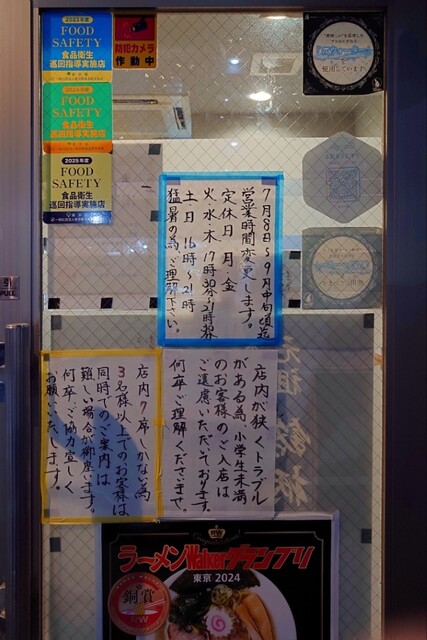 2023年度
FOOD
SAFETY
食品衛生
巡回指導実施店
防犯カメラ
作動中
2024年度
FOOD
SAFETY
食品衛生
巡回指導実施店
2025年度
FOOD
SAFETY
食品衛生
巡回指導実施店
を使用しています。
PULL
7月8日〜9月中旬頃迄
営業時間変更します。
定休日 月・金
火水木17時半〜21時半
土日16時〜21時
猛暑の為、ご理解下さい。
店内が狭くトラブル
がある為、小学生未満
のお客様のご入店は
ご遠慮いただいております。
何卒ご理解くださいませ。
店内7席しかない為
3名様以上でのお客様は、
同時でのご案内は
難しい場合が御座います。
何卒、ご協力宜しく
お願いいたします。
元祖
ラーメンWalkerグランプリ
東京 2024
銅賞
RW